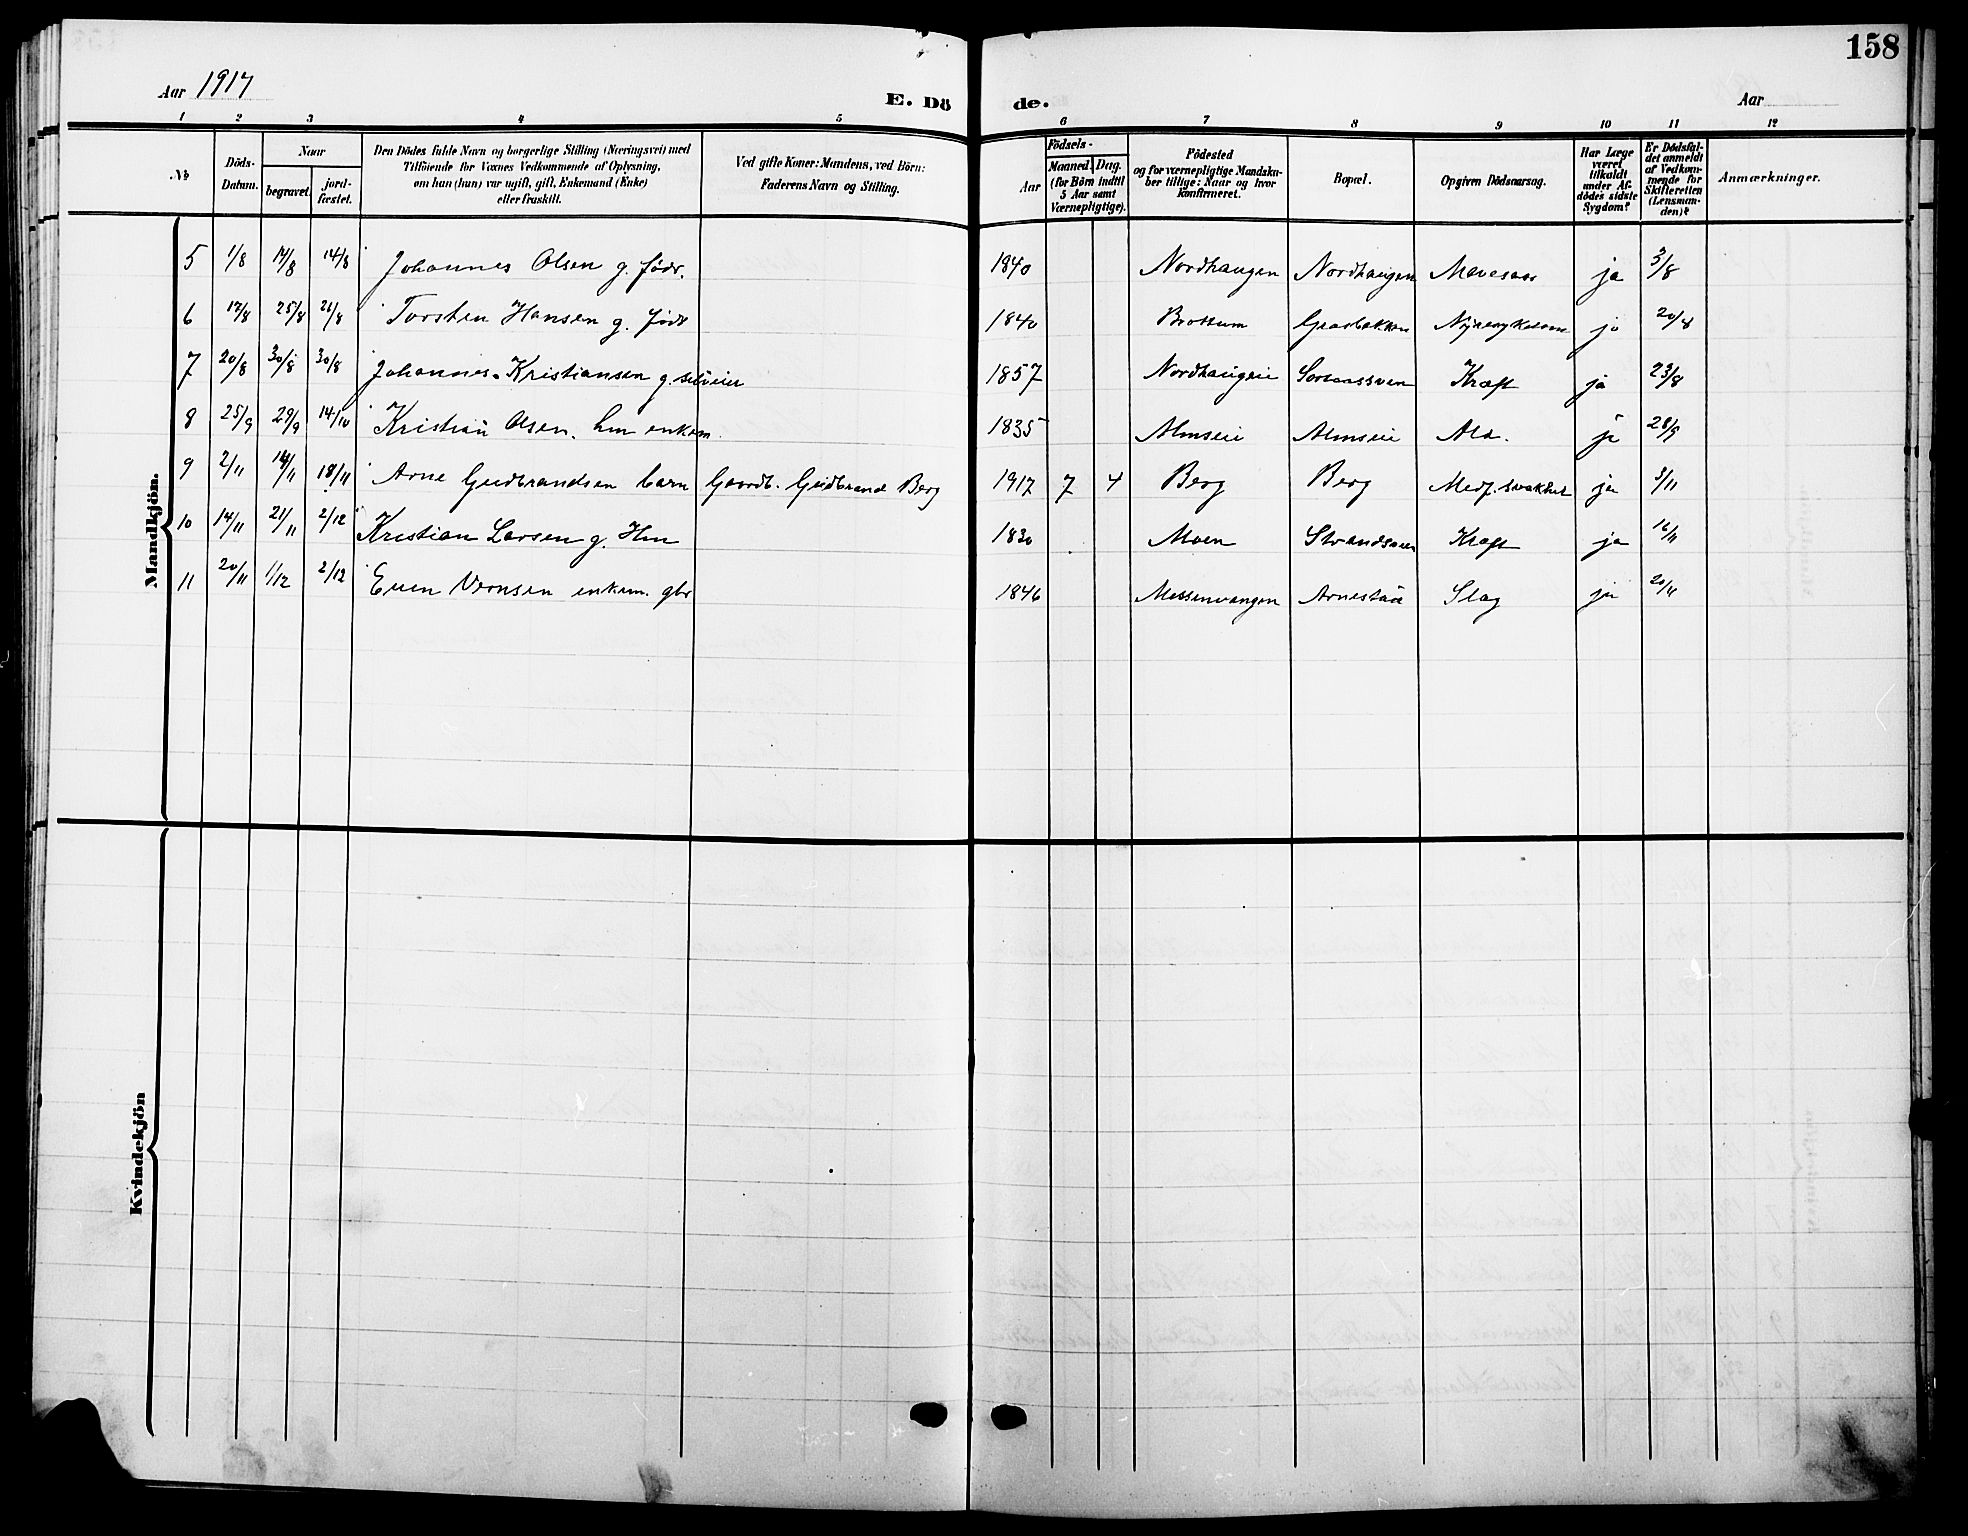 158
Aar 1917
E. Dö de.
Aar
1 2 3 4 5 6 7 8 9 10 11 12
№
Döds-Datum.
Naar
begravet.
jord-fæstet.
Den Dödes fulde Navn og borgerlige Stilling (Næringsvei) med
Tilföiende for Voxnes Vedkommende af Oplysning,
om han (hun) var ugift, gift, Enkemand (Enke)
eller fraskilt.
Ved gifte Koner: Mandens, ved Börn:
Faderens Navn og Stilling.
Födsels-
Aar
Maaned. Dag.
(for Börn indtil
5 Aar samt
Værnepligtige).
Födested
og for værnepligtige Mandska-
ber tillige: Naar og hvor
konfirmeret.
Bopæl.
Opgiven Dödsaarsag.
Har Læge
været
tilkaldt
under Af-
dödes sidste
Sygdom?
Er Dödsfal-
det anmeldt
af Vedkom-
mende for
Skifteretten
(Lensman-
den)?
Anmærkninger.
Mandkjön.
5 1/8 14/8 14/8 Johannes Olsen g. födr. 1840 Nordhaugen Nordhaugen Mavesaar ja 3/8
6 17/8 25/8 26/8 Torsten Hansen g. födr 1840 Brottum ja
7 20/8 30/8 30/8 Johannes Kristiansen g. selveier 1857 Kræft ja 23/8
8 25/9 29/9 14/10 Kristian Olsen. hm enkem. 1835 Almseie Almseie Ald. ja 28/9
9 2/11 14/11 18/11 Arne Gudbrandsen barn Gaardb. Gudbrand Berg 1917 7 4 Berg Berg Medf. svakhet ja 3/11
10 14/11 21/11 2/12 Kristian Larsen g. Hm 1830 Moen Kræft ja 16/11
11 20/11 1/12 2/12 Even enkem. gbr 1846 Messenvangen Slag ja 20/11
Kvindekjön